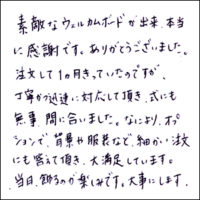 素敵なウェルカムボードが出来、本当
に感謝です。ありがとうございました。
注文して1ヵ月きっていたのですが、
丁寧かつ迅速に対応して頂き、式にも
無事、間に合いました。なにより、オプ
ションで、背景や服装など、細かい注文
にも答えて頂き、大満足しています。
当日、飾るのが楽しみです。大事にします。